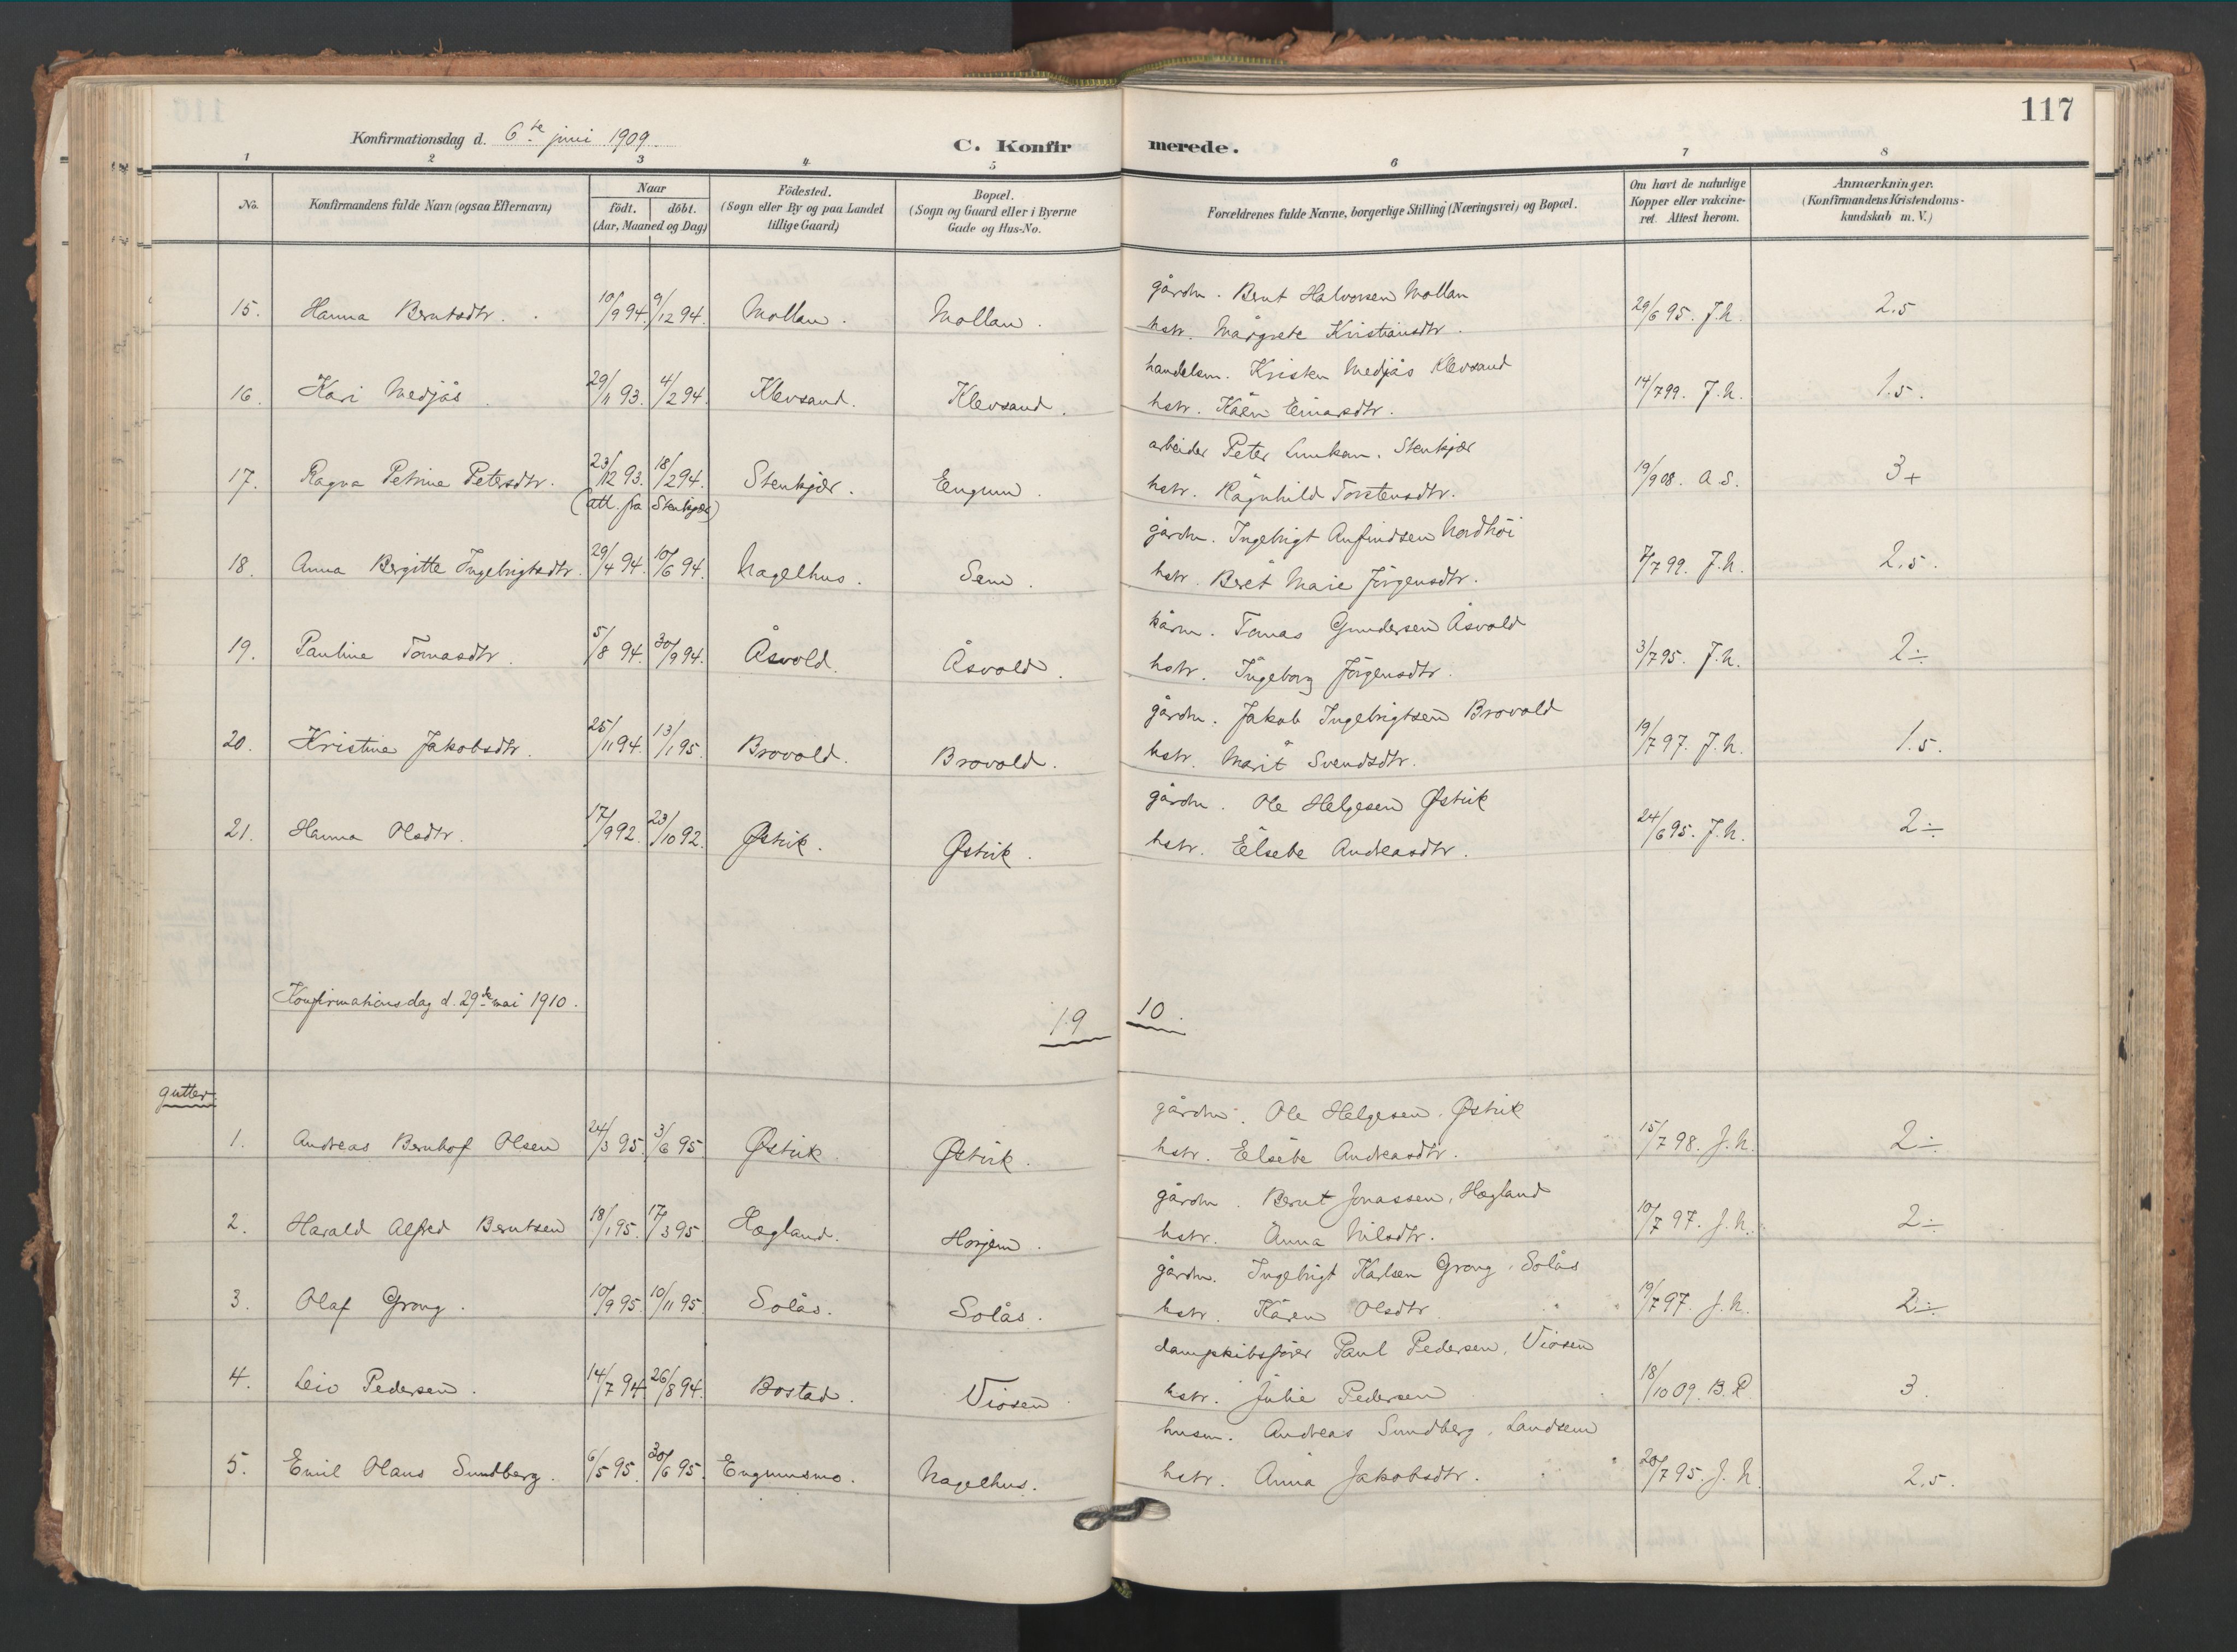 117
Konfirmationsdag d. 6te juni 1909.
C. Konfirmerede.
1 2 3 4 5 6 7 8
No.
Konfirmandens fulde Navn (ogsaa Efternavn)
Naar
født. døbt.
(Aar, Maaned og Dag)
Födested.
(Sogn eller By og paa Landet
tillige Gaard)
Bopæl.
(Sogn og Gaard eller i Byerne
Gade og Hus-No.
Forældrenes fulde Navne, borgerlige Stilling (Næringsvei) og Bopæl.
Om havt de naturlige
Kopper eller vakcine-
ret. Attest herom.
Anmærkninger.
(Konfirmandens Kristendoms-
kundskab m. V.)
gårdm. Bernt Halvorsen Mollan
15. Hanna Berntsdtr. 10/9 94. 9/12 94. Mollan. Mollan. hstr. Margrete Kristiansdtr. 29/6 95. J.N. 2.5
handelsm. Kristen Medjås Klevsand
16. Kari Medjås 29/11 93. 4/2 94. Klevsand. Klevsand. hstr. Karen Einarsdtr. 14/7 99. J.N. 1.5.
arbeider Peter Lunkan. Stenkjær
17. Ragna Petrine Petersdtr. 23/12 93. 18/2 94. Stenkjær. Engum. hstr. Ragnhild Torstensdtr. 19/9 08. A.S. 3+
(att. fra Stenkjær)
gårdm. Ingebrigt Anfindsen Nordhöi
18. Anna Bergitte Ingebrigtsdtr. 29/4 94. 10/6 94. Nagelhus. Sem. hstr. Beret Marie Jörgensdtr. 7/7 99. J.N. 2.5.
kårm. Tomas Gundersen Åsvold
19. Pauline Tomasdtr. 5/8 94. 30/9 94. Åsvold. Åsvold. hstr. Ingeborg Jörgensdtr. 3/7 95. J.N. 2÷
gårdm. Jakob Ingebrigtsen Brovold
20. Kristine Jakobsdtr. 25/11 94. 13/1 95. Brovold. Brovold. hstr. Marit Svendsdtr. 19/7 97. J.N. 1.5.
gårdm. Ole Helgesen Østvik
21. Hanna Olsdtr. 17/9 92. 23/10 92. Østvik. Østvik. hstr. Elsebe Andreasdtr. 24/6 95. J.N. 2÷
Konfirmationsdag d. 29de mai 1910.
19 10.
gutter.
gårdm. Ole Helgesen. Østvik
1. Andreas Bernhof Olsen 24/3 95. 3/6 95. Østvik. Østvik. hstr. Elsebe Andreasdtr. 15/7 98. J.N. 2÷
gårdm. Bernt Jonassen, Hægland
2. Harald Alfred Berntsen 18/1 95. 17/3 95. Hægland. Horjem. hstr. Anna Nilsdtr. 10/7 97. J.N. 2÷
gårdm. Ingebrigt Karlsen Grong, Solås
3. Olaf Grong. 10/9 95. 10/11 95. Solås. Solås. hstr. Karen Olsdtr. 19/7 97. J.N. 2÷
dampskibsfører Paul Pedersen, Viosen
4. Leiv Pedersen. 14/7 94. 26/8 94. Bostad. Viosen. hstr. Julie Pedersen 18/10 09. B.R. 3.
husm. Andreas Sundberg, Landsem
5. Emil Olaus Sundberg. 6/5 95. 30/6 95. Engumsmo. Nagelhus. hstr. Anna Jakobsdtr. 20/7 95. J.N. 2.5.